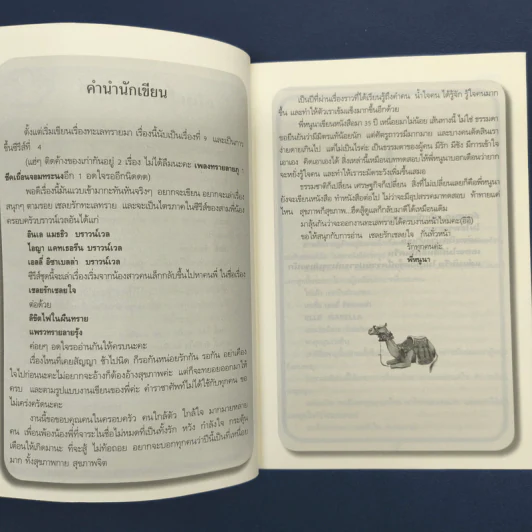 คำนำนักเขียน
ตั้งแต่เริ่มเขียนเรื่องทะเลทรายมา เรื่องนี้นับเป็นเรื่องที่ ๖ และเป็นการ
ขึ้นซีรีส์ที่ 4
(แฮ่ๆ ติดค้างของเก่ากันอยู่ 2 เรื่อง ไม่ได้ลืมนะคะ เพลงทรายลาย
อีก 1 อดใจรออีกนิดคดด)
พอดีเรื่องนี้มันแวบเข้ามากะทันหันจริงๆ อยากจะเขียน อยากจะเล่าเรื่อง
สนุกๆ ตามรอย เชลยรักทะเลทราย และจะเป็นไตรภาคในซีรีส์ของสามพี่น้อง
ครอบครัวบราวน์เวลอันได้แก่
อันเล แมธธิว บราวน์เวล
โอญา แคทเธอรีน บราวน์เวล
เฮลลี่ อิซาเบลล่า บราวน์เวล
ซีรีส์ชุดนี้จะเล่าเรื่องเริ่มจากน้องสาวคนเล็กกลับขึ้นไปหาคนพี่ ในชื่อเรื่อง
เชลยรักเชลยใจ
ต่อด้วย
ลิขิตไฟในผืนทราย
แพรวทรายลายรุ้ง
ค่อยๆ อดใจรออ่านกันให้ครบนะคะ
เรื่องไหนที่เคยสัญญา ช้าไปนิด ก็รอกันหน่อยรักกัน รอกัน อย่าเดือง
ใจไปก่อนนะคะไม่อยากจะอ้างก็ต้องอ้างสุขภาพค่ะ แต่ก็จะทยอยออกมาให้
ครบ และตามรูปแบบงานเขียนของพี่ค่ะ คำราชาศัพท์ไม่ได้ใช้กับทุกคน ขอ
ไม่เคร่งครัดนะคะ
งานนี้ขอขอบคุณคนในครอบครัว คนใกล้ตัว ใกล้ใจ มากมายหลาย
คน เพื่อนพ้องน้องพี่ที่จาระไนชื่อไม่หมดที่เป็นทั้งรัก หวัง กำลังใจ กระตุ้น
เตือนให้เกิดมานะ ที่จะสู้ ไม่ท้อถอย อยากจะบอกทุกคนว่าปีนี้เป็นที่เหนื่อย
มาก ทั้งสุขภาพกาย สุขภาพจิต
เป็นปีที่ผ่านเรื่องราวที่ได้เรียนรู้ถึงค่าคน น้ำใจคน ได้รู้จัก รู้ใจคนมาก
ขึ้น และทำให้ตัวเราเข้มแข็งมากขึ้นอีกด้วย
พี่หนูนาเขียนหนังสือมา 35 ปี เหนื่อยมาไม่น้อย เส้นทางนี้ ไม่ใช่ ธรรมดา
ขอยืนยันว่ามีมิตรแท้น้อยนัก แต่ศัตรูถาวรมีมากมาย และบางคนคิดสิ้นเรา
ง่ายดายเกินไป แต่ไม่เป็นไรค่ะ เป็นธรรมดาของผู้คน มีรัก มีชัง มีการเข้าใจ
เอาเอง คิดเอาเองได้ สิ่งเหล่านี้เหมือนบททดสอบให้พี่หนูนาบอกเตือนว่ายาก
จะหยั่งรู้ใจคน และทำให้เราระมัดระวังเพิ่มขึ้นเสมอ
ธรรมชาติก็เปลี่ยน เศรษฐกิจก็เปลี่ยน สิ่งที่ไม่เปลี่ยนเลยก็คือพี่หนูนา
ยังจะเขียนหนังสือ ทำหนังสือต่อไป ไม่ว่าจะมีอุปสรรคมาทดสอบ ท้าทายแค่
ไหน สุขภาพก็สุขภาพ...ฮึดสู้ดูแลก็กลับมาดีได้เหมือนเดิม
มาลุ้นกันว่าจะออกงานตะเกาทรายได้ครบงานหน้าไหมคะ(ฮิฮิ)
ขอให้สนุกกับการอ่าน เชลยรักเชลยใจ กันทั่วหน้า
รักทุกคนค่ะ
พี่หนูนา